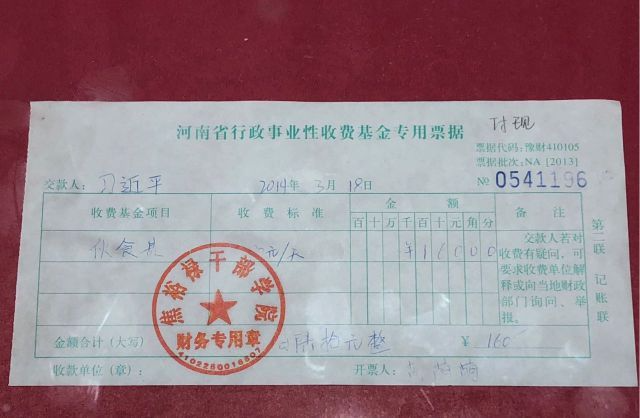 河南省行政事业性收费基金专用票据
付现
票据代码:豫财410105
票据批次:NA [2013]
交款人:习近平
2014年3月18日
№ 0541196
收费基金项目 收费标准 金额 备注
百十万千百十元角分
伙食费 元/天 ¥16000
交款人若对收费有疑问,可要求收费单位解释或向当地财政部门询问、举报。
第二联 记账联
焦裕禄干部学院
财务专用章
4102250016807
金额合计(大写) 佰陆拾元整 ¥ 160
收款单位(章): 开票人: